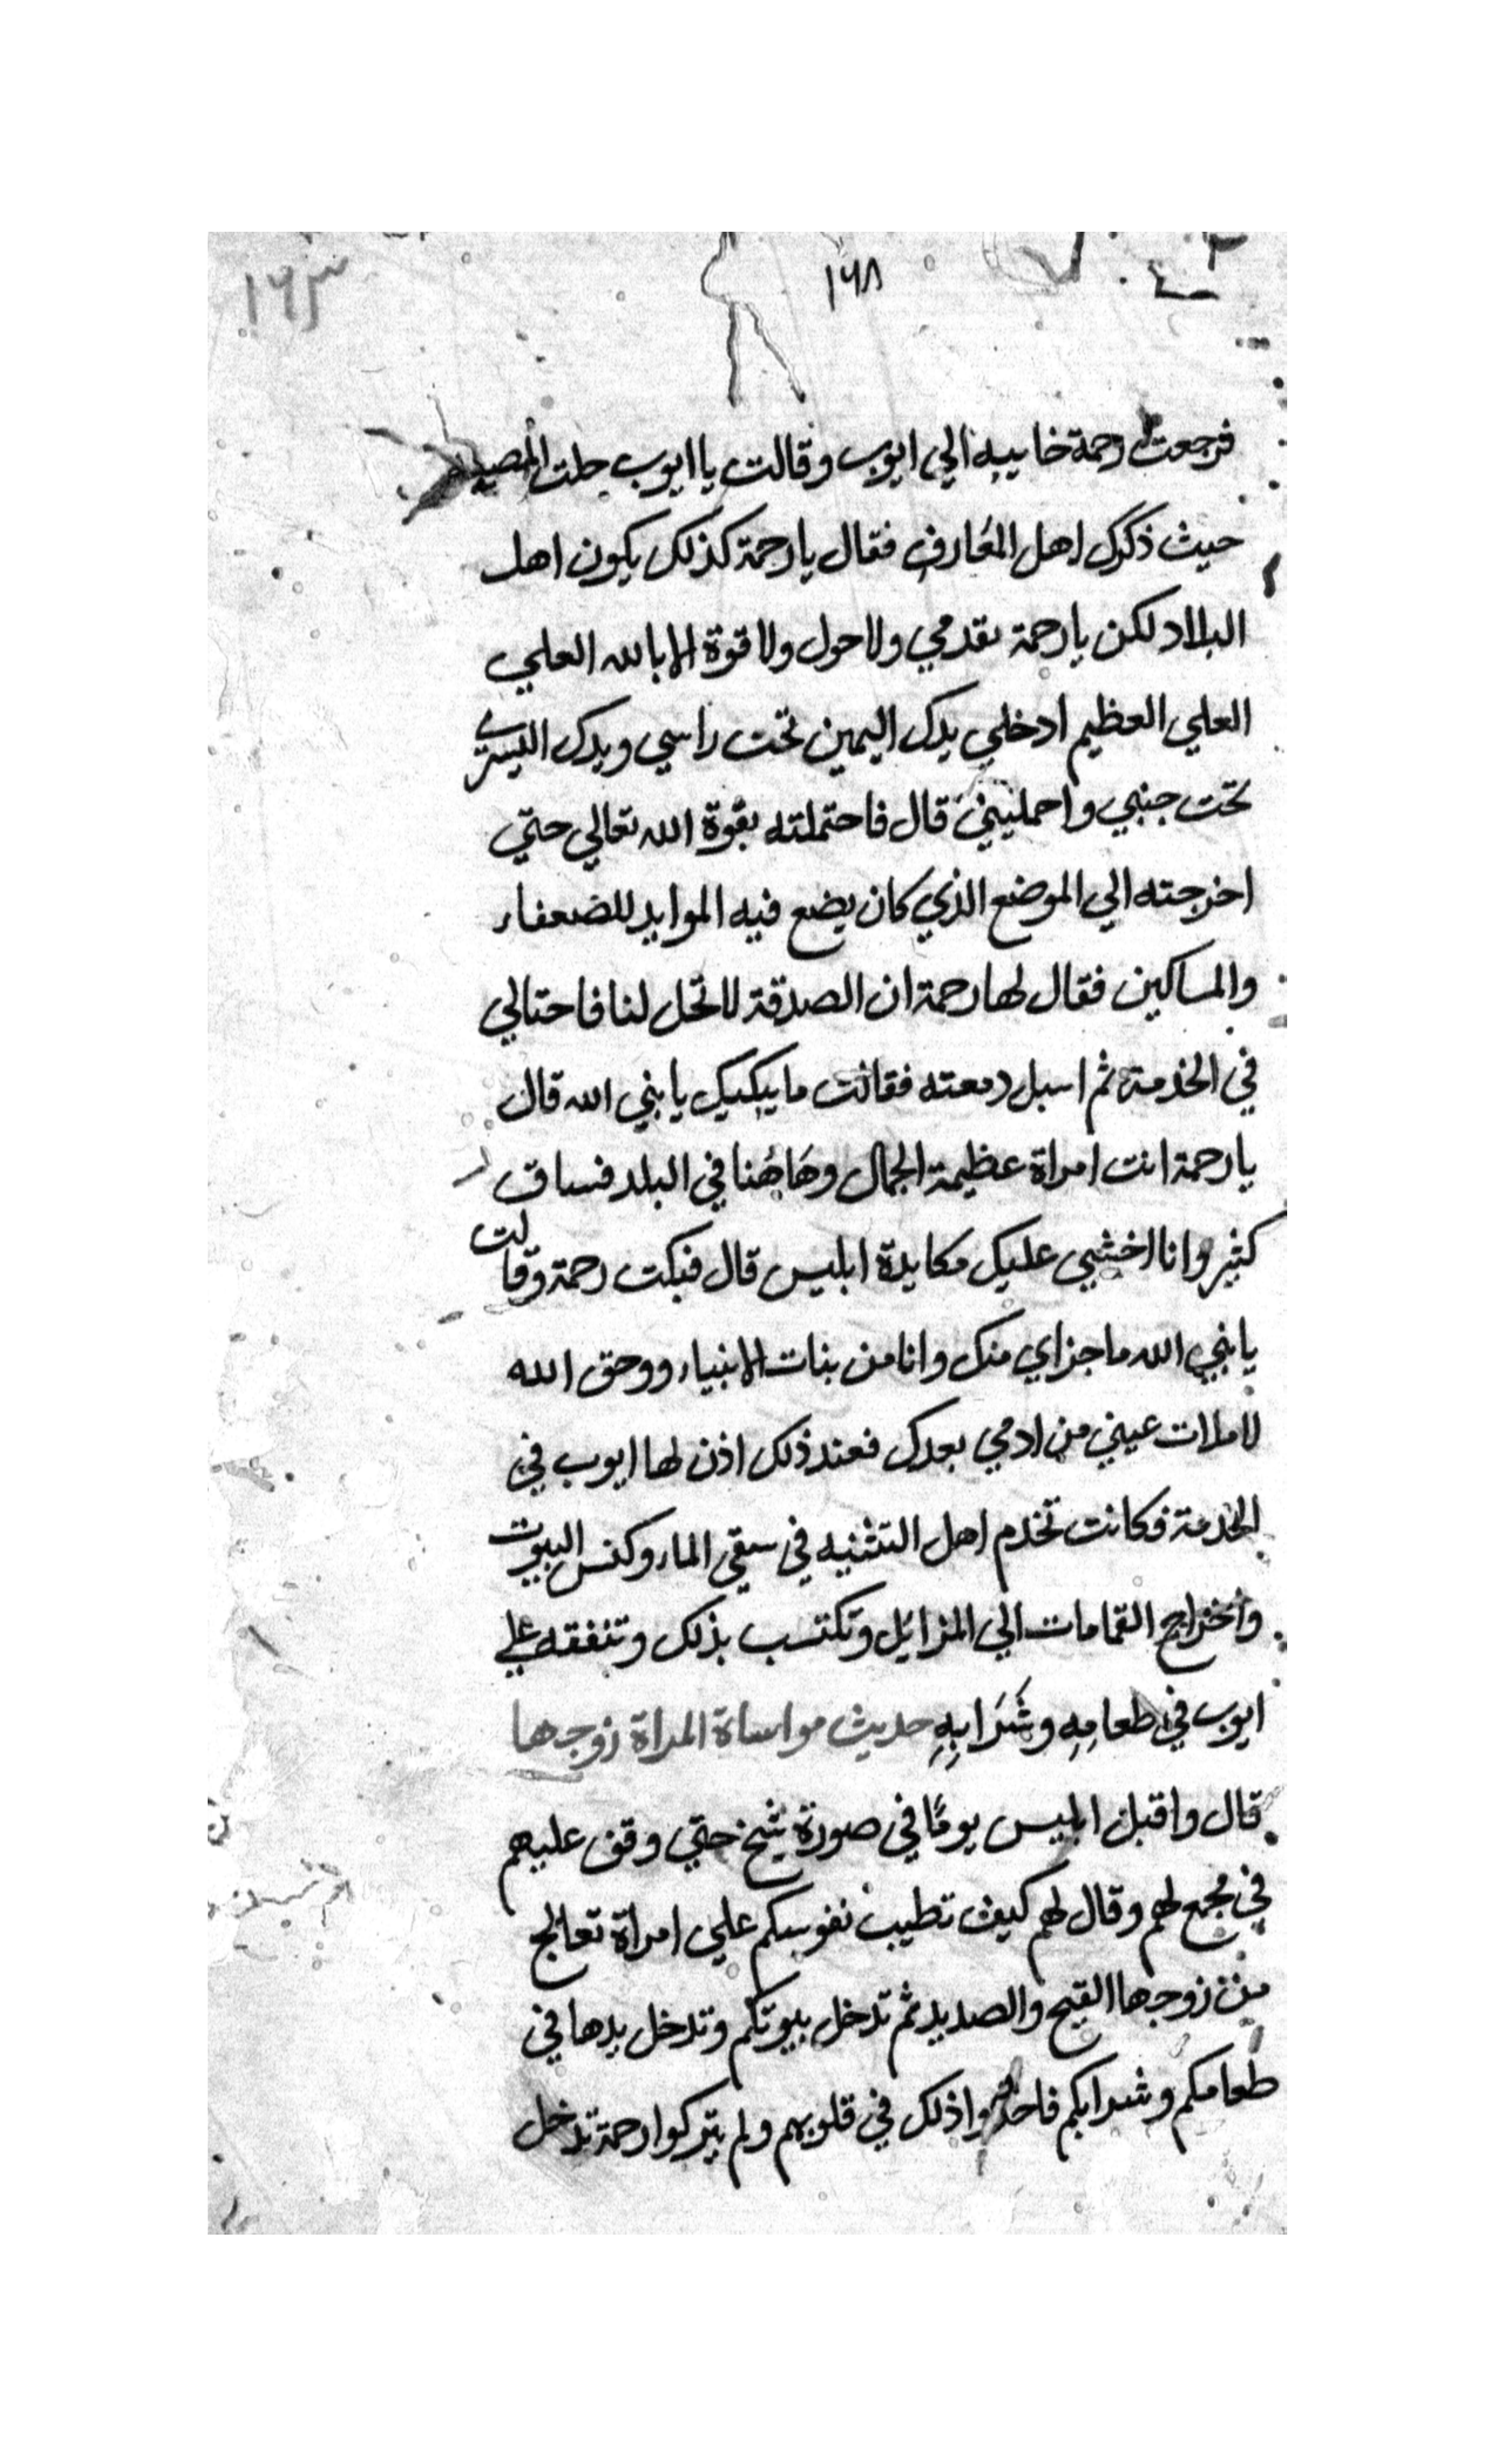 ١٦٨
١٦٣
فرجعت رحمة خايبه الي ايوب وقالت يا ايوب جلت المصيبه
حيث ذكرك اهل المعارف فقال يا رحمة كذلك يكون اهل
البلاد لكن يا رحمة تقدمي ولا حول ولا قوة الا بالله العلي
العلي العظيم ادخلي يدك اليمين تحت راسي ويدك اليسرى
تحت جنبي واحمليني قال فاحتملته بقوة الله تعالي حتي
اخرجته الي الموضع الذي كان يضع فيه الموايد للضعفاء
والمساكين فقال لها رحمة ان الصدقة لا تحل لنا فاحتالي
في الخدمة ثم اسبل دمعته فقالت ما يبكيك يا نبي الله قال
يا رحمة انت امراة عظيمة الجمال وهَاهُنا في البلد فساق
كثير وانا اخشي عليك مكايدة ابليس قال فبكت رحمة وقالت
يا نبي الله ما جزاي منك وانا من بنات الانبياء ووحق الله
لا ملات عيني من ادمي بعدك فعند ذلك اذن لها ايوب في
الخدمة فكانت تخدم اهل التثنيه في سقي الماء وكنس البيوت
واخراج القمامات الي المزابل وتكتسب بذلك وتنفقه علي
ايوب في طعامِهِ وشَرَابِهِ حديث مواساة المراة زوجها
قال واقبل ابليس يومًا في صورة شيخ حتي وقف عليهم
في مجمع لهم وقال لهم كيف تطيب نفوسكم علي امراة تعالج
من زوجها القيح والصديد ثم تدخل بيوتكم وتدخل يدها في
طعامكم وشرابكم ذلك في قلوبهم ولم يتركوا رحمة تدخل